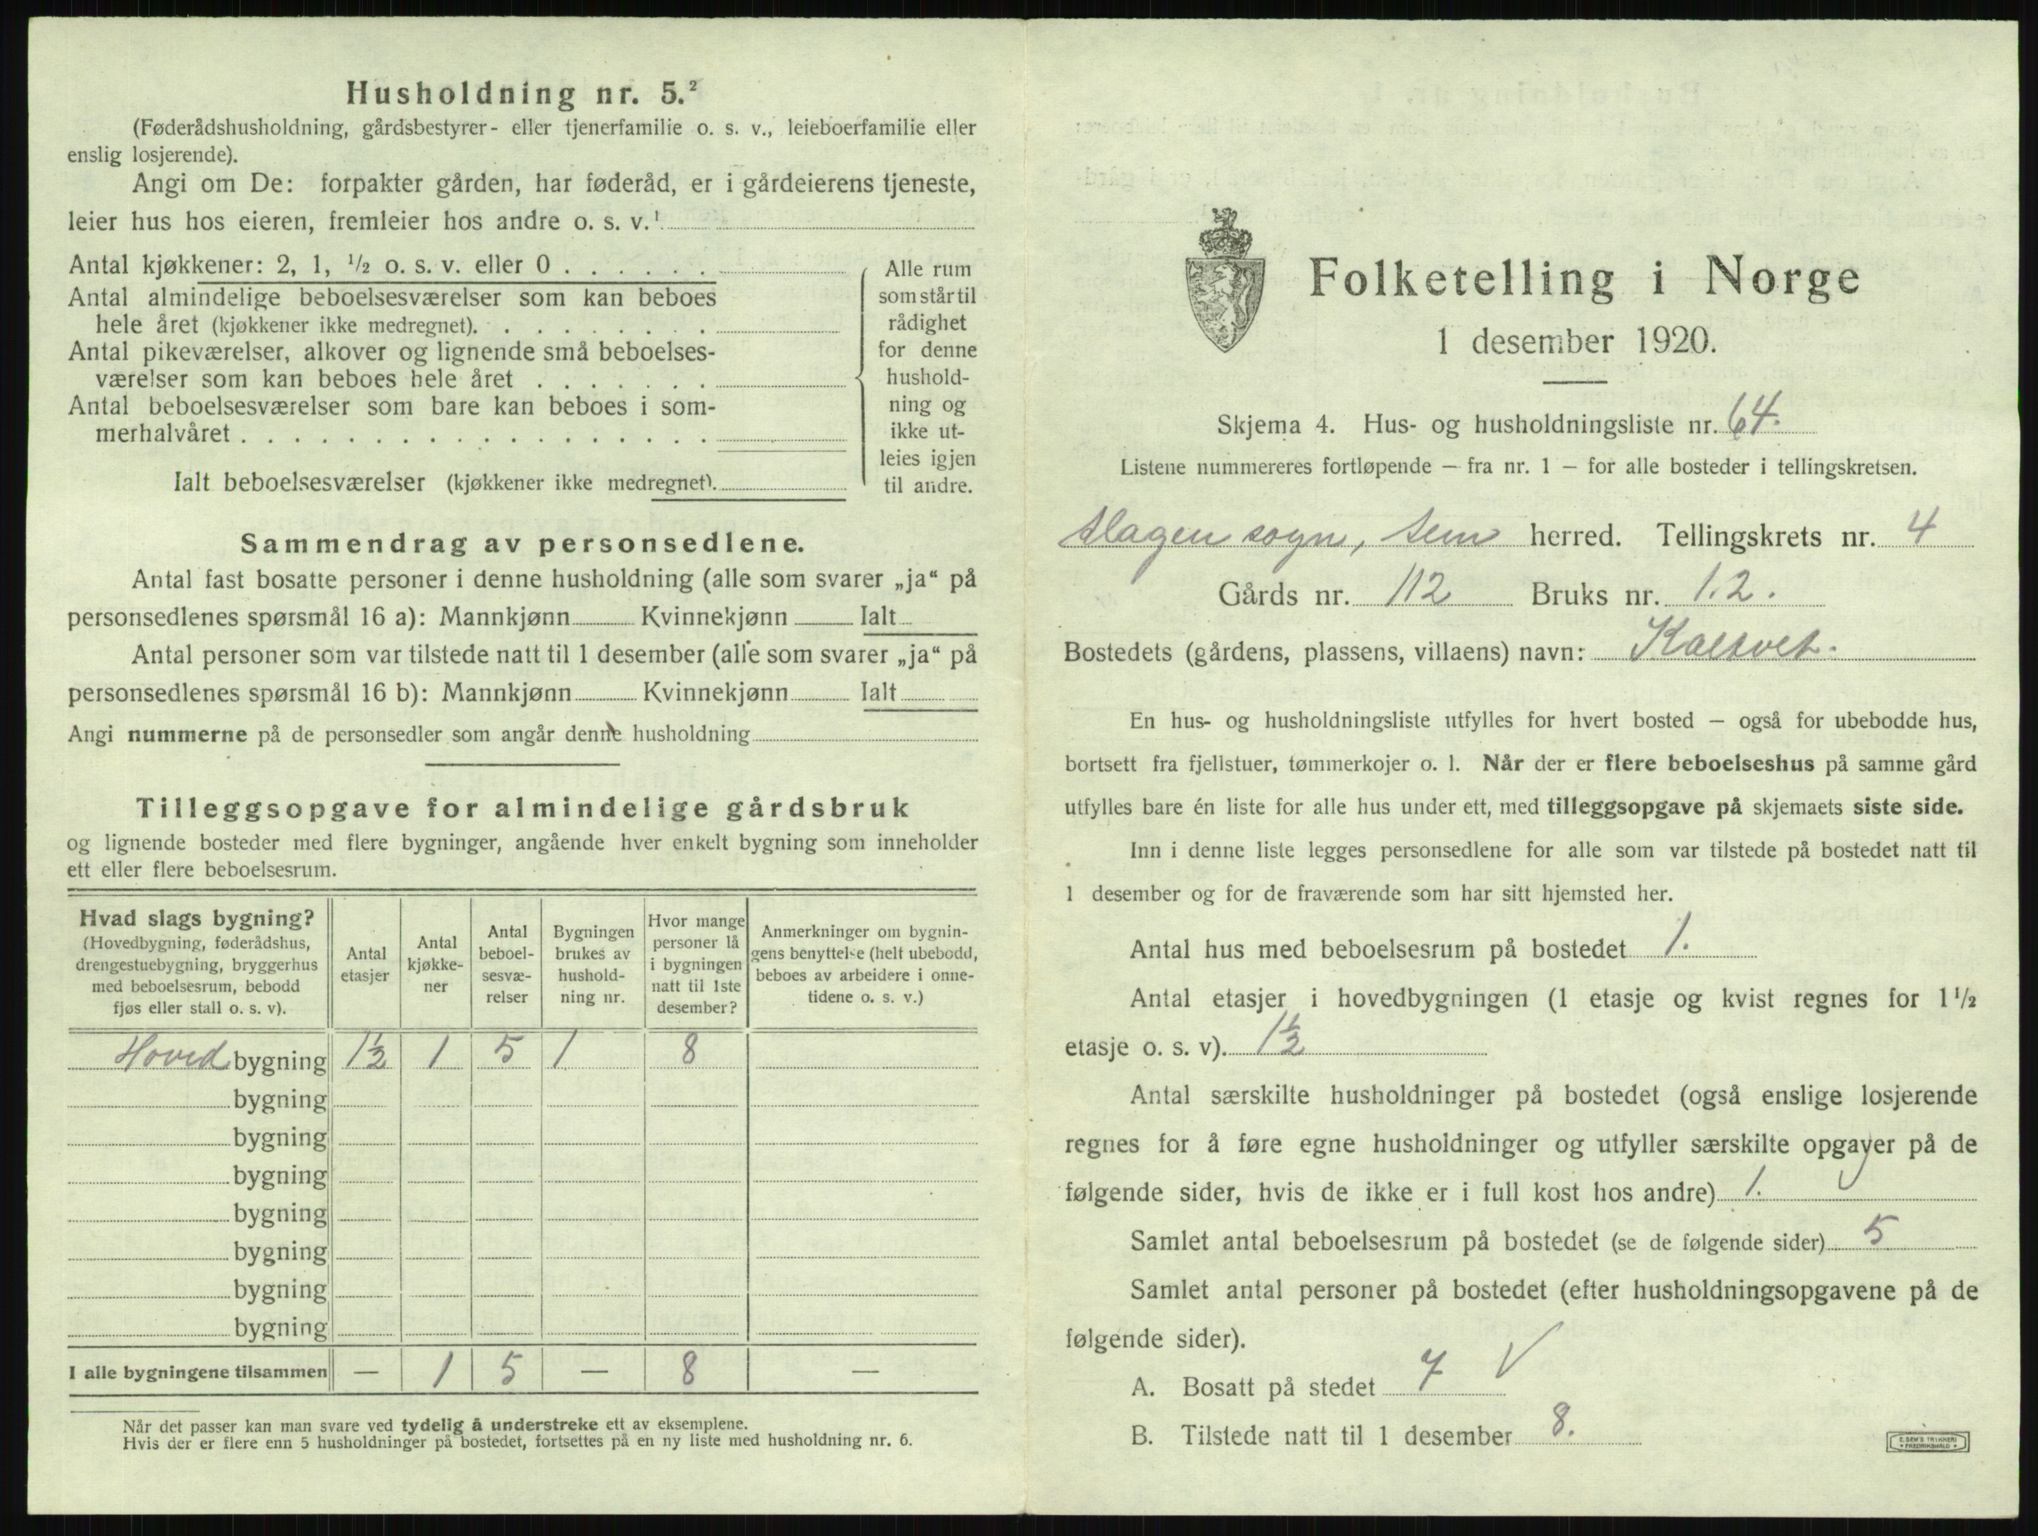 Husholdning nr. 5.²
(Føderådshusholdning, gårdsbestyrer- eller tjenerfamilie o. s. v., leieboerfamilie eller
enslig losjerende).
Angi om De: forpakter gården, har føderåd, er i gårdeierens tjeneste,
leier hus hos eieren, fremleier hos andre o. s. v.¹
Antal kjøkkener: 2, 1, ½ o. s. v. eller 0 . . . . . .
Antal almindelige beboelsesværelser som kan beboes
hele året (kjøkkener ikke medregnet). . . . . . . . .
Antal pikeværelser, alkover og lignende små beboelses-
værelser som kan beboes hele året . . . . . . .
Antal beboelsesværelser som bare kan beboes i som-
merhalvåret . . . . . . . . . . . . . . . . . .
Ialt beboelsesværelser (kjøkkener ikke medregnet).
Alle rum
som står til
rådighet
for denne
hushold-
ning og
ikke ut-
leies igjen
til andre.
Sammendrag av personsedlene.
Antal fast bosatte personer i denne husholdning (alle som svarer „ja“ på
personsedlenes spørsmål 16 a): Mannkjønn Kvinnekjønn Ialt
Antal personer som var tilstede natt til 1 desember (alle som svarer „ja“ på
personsedlenes spørsmål 16 b): Mannkjønn Kvinnekjønn Ialt
Angi nummerne på de personsedler som angår denne husholdning
Tilleggsopgave for almindelige gårdsbruk
og lignende bosteder med flere bygninger, angående hver enkelt bygning som inneholder
ett eller flere beboelsesrum.
Hvad slags bygning?
(Hovedbygning, føderådshus,
drengestuebygning, bryggerhus
med beboelsesrum, bebodd
fjøs eller stall o. s. v).
Antal
etasjer
Antal
kjøkke-
ner
Antal
beboel-
sesvæ-
relser
Bygningen
brukes av
hushold-
ning nr.
Hvor mange
personer lå
i bygningen
natt til 1ste
desember?
Anmerkninger om bygnin-
gens benyttelse (helt ubebodd,
beboes av arbeidere i onne-
tidene o. s. v.)
Hoved bygning 1½ 1 5 1 8
bygning
bygning
bygning
bygning
bygning
bygning
bygning
I alle bygningene tilsammen — 1 5 — 8 —
Når det passer kan man svare ved tydelig å understreke ett av eksemplene.
Hvis der er flere enn 5 husholdninger på bostedet, fortsettes på en ny liste med husholdning nr. 6.
Folketelling i Norge
1 desember 1920.
Skjema 4. Hus- og husholdningsliste nr. 64.
Listene nummereres fortløpende – fra nr. 1 – for alle bosteder i tellingskretsen.
Slagen sogn, Sem herred. Tellingskrets nr. 4
Gårds nr. 112 Bruks nr. 12.
Bostedets (gårdens, plassens, villaens) navn:
En hus- og husholdningsliste utfylles for hvert bosted – også for ubebodde hus,
bortsett fra fjellstuer, tømmerkojer o. l. Når der er flere beboelseshus på samme gård
utfylles bare én liste for alle hus under ett, med tilleggsopgave på skjemaets siste side.
Inn i denne liste legges personsedlene for alle som var tilstede på bostedet natt til
1 desember og for de fraværende som har sitt hjemsted her.
Antal hus med beboelsesrum på bostedet 1.
Antal etasjer i hovedbygningen (1 etasje og kvist regnes for 1½
etasje o. s. v). 1½
Antal særskilte husholdninger på bostedet (også enslige losjerende
regnes for å føre egne husholdninger og utfyller særskilte opgaver på de
følgende sider, hvis de ikke er i full kost hos andre) 1.
Samlet antal beboelsesrum på bostedet (se de følgende sider) 5
Samlet antal personer på bostedet (efter husholdningsopgavene på de
følgende sider).
A. Bosatt på stedet 7 √
B. Tilstede natt til 1 desember 8.
E. SEM'S TRYKKERI
FREDRIKSHALD